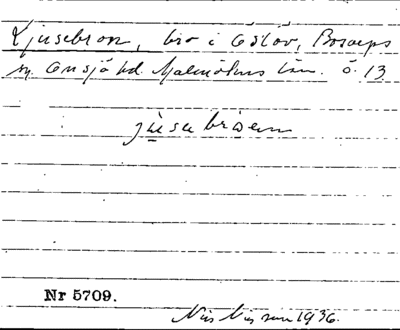 Ljusebron, bro i Eslöv, Bosarps
sn. Onsjö hd. Malmöhus län. ö. 13
jüsebrøen
Nr 5709.
Nils Nilsson 1936.